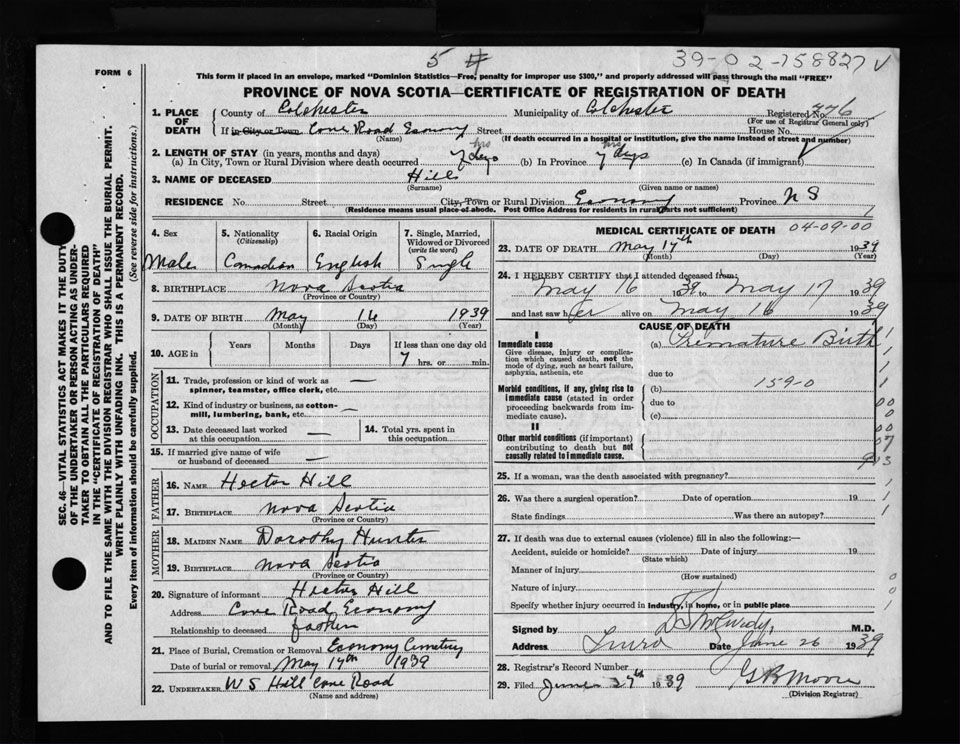 5 #
39-02-158827
FORM 6
This form if placed in an envelope, marked "Dominion Statistics—Free, penalty for improper use $300," and properly addressed will pass through the mail "FREE"
PROVINCE OF NOVA SCOTIA—CERTIFICATE OF REGISTRATION OF DEATH
1. PLACE OF DEATH
County of Colchester Municipality of Colchester Registered No. 376
(For use of Registrar General only)
If in City or Town Cove Road Economy Street House No.
(Name) (If death occurred in a hospital or institution, give the name instead of street and number)
2. LENGTH OF STAY (in years, months and days)
(a) In City, Town or Rural Division where death occurred 7 days hrs (b) In Province 7 days hrs (c) In Canada (if immigrant)
3. NAME OF DECEASED Hill
(Surname) (Given name or names)
RESIDENCE No. Street City, Town or Rural Division Economy Province N S
(Residence means usual place of abode. Post Office Address for residents in rural parts not sufficient)
4. Sex 5. Nationality 6. Racial Origin 7. Single, Married,
(Citizenship) Widowed or Divorced
(write the word)
Male Canadian English Single
8. BIRTHPLACE Nova Scotia
(Province or Country)
9. DATE OF BIRTH May 16 1939
(Month) (Day) (Year)
10. AGE in Years Months Days If less than one day old
7 hrs. or min.
OCCUPATION
11. Trade, profession or kind of work as —
spinner, teamster, office clerk, etc.
12. Kind of industry or business, as cotton-
mill, lumbering, bank, etc. —
13. Date deceased last worked — 14. Total yrs. spent in
at this occupation this occupation
15. If married give name of wife
or husband of deceased —
FATHER
16. NAME Hector Hill
17. BIRTHPLACE Nova Scotia
(Province or Country)
MOTHER
18. MAIDEN NAME Dorothy Hunter
19. BIRTHPLACE Nova Scotia
(Province or Country)
20. Signature of informant Hector Hill
Address Cove Road Economy
Relationship to deceased father
21. Place of Burial, Cremation or Removal Economy Cemetery
Date of burial or removal May 17th 1939
22. UNDERTAKER W S Hill Cove Road
(Name and address)
MEDICAL CERTIFICATE OF DEATH 04-09-00
23. DATE OF DEATH May 17th 1939
(Month) (Day) (Year)
24. I HEREBY CERTIFY that I attended deceased from:
May 16 1939 to May 17 1939
and last saw her alive on May 16 1939
CAUSE OF DEATH
I
Immediate cause (a) Premature Birth
Give disease, injury or complica-
tion which caused death, not the
mode of dying, such as heart failure,
asphyxia, asthenia, etc
due to
Morbid conditions, if any, giving rise to
immediate cause (stated in order
proceeding backwards from im-
mediate cause).
(b) 159-0
due to
(c)
II
Other morbid conditions (if important)
contributing to death but not
causally related to immediate cause.
25. If a woman, was the death associated with pregnancy?
26. Was there a surgical operation? Date of operation 19
State findings Was there an autopsy?
27. If death was due to external causes (violence) fill in also the following:—
Accident, suicide or homicide? Date of injury 19
(State which)
Manner of injury
(How sustained)
Nature of injury
Specify whether injury occurred in industry, in home, or in public place
Signed by M.D.
Address Truro Date June 26 1939
28. Registrar's Record Number
29. Filed June 27th 1939 G B Moore
(Division Registrar)
SEC. 46—VITAL STATISTICS ACT MAKES IT THE DUTY
OF THE UNDERTAKER OR PERSON ACTING AS UNDER-
TAKER TO OBTAIN ALL THE PARTICULARS REQUIRED
IN THE "CERTIFICATE OF REGISTRATION OF DEATH"
AND TO FILE THE SAME WITH THE DIVISION REGISTRAR WHO SHALL ISSUE THE BURIAL PERMIT.
WRITE PLAINLY WITH UNFADING INK. THIS IS A PERMANENT RECORD.
Every item of information should be carefully supplied. (See reverse side for instructions.)